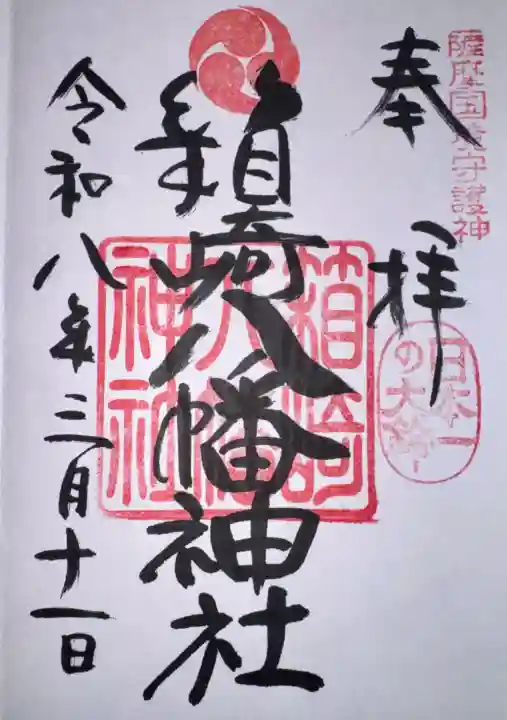 薩摩国守護神
奉拝
日本一
の大鈴
箱崎八幡神社
箱崎
八幡
神社
令和八年三月十一日